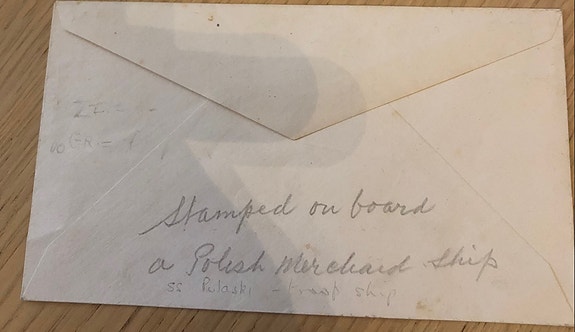 Stamped on board
a Polish Merchand Ship
SS Pulaski - troop ship